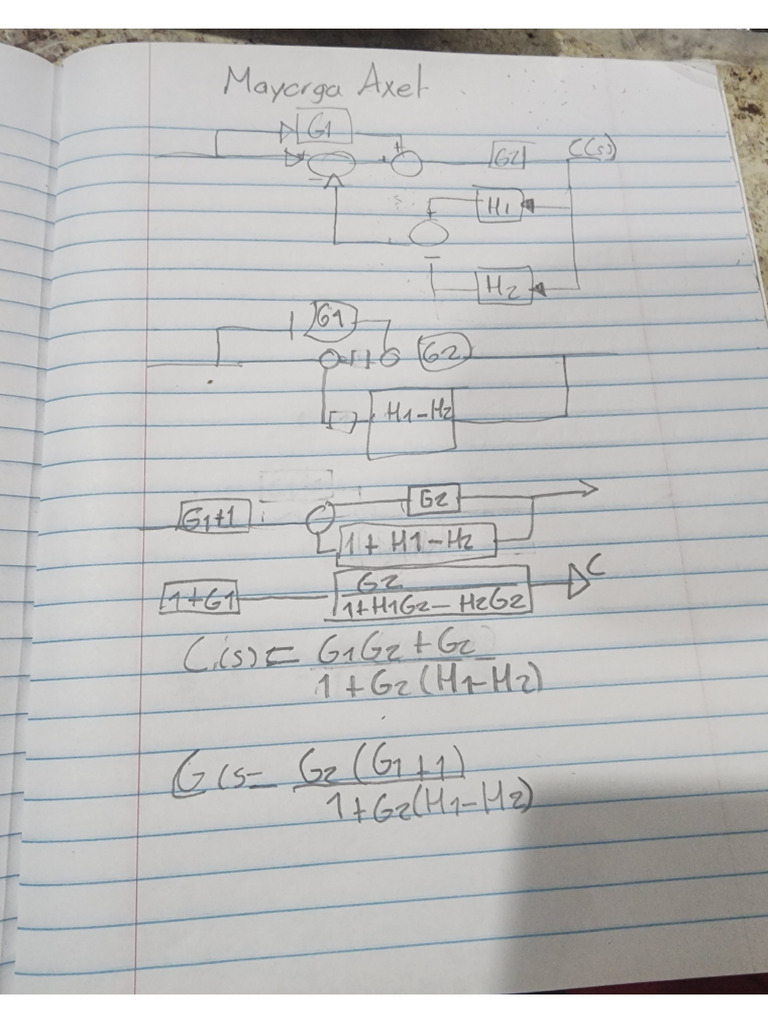 Mayorga Axel
G1
+
+ G2 C(s)
-
H1
-
H2
G1
G2
H1-H2
G1+1 G2
1+H1-H2
1+G1 G2 / 1+H1G2-H2G2 C
C(s)= G1G2+G2 / 1+G2(H1-H2)
G(s= G2(G1+1) / 1+G2(H1-H2)